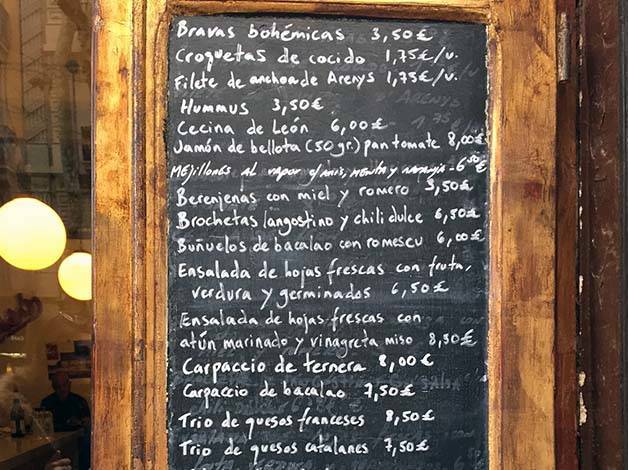 Bravas bohémicas 3,50€
Croquetas de cocido 1,75€/u.
Filete de anchoa de Arenys 1,75€/u.
Hummus 3,50€
Cecina de León 6,00€
Jamón de bellota (50gr.) pan tomate 8,00€
Mejillones al vapor c/anís, menta y naranja - 6,50€
Berenjenas con miel y romero 3,50€
Brochetas langostino y chili dulce 6,50€
Buñuelos de bacalao con romescu 6,00€
Ensalada de hojas frescas con fruta,
verdura y germinados 6,50€
Ensalada de hojas frescas con
atún marinado y vinagreta miso 8,50€
Carpaccio de ternera 8,00€
Carpaccio de bacalao 7,50€
Trio de quesos franceses 8,50€
Trio de quesos catalanes 7,50€